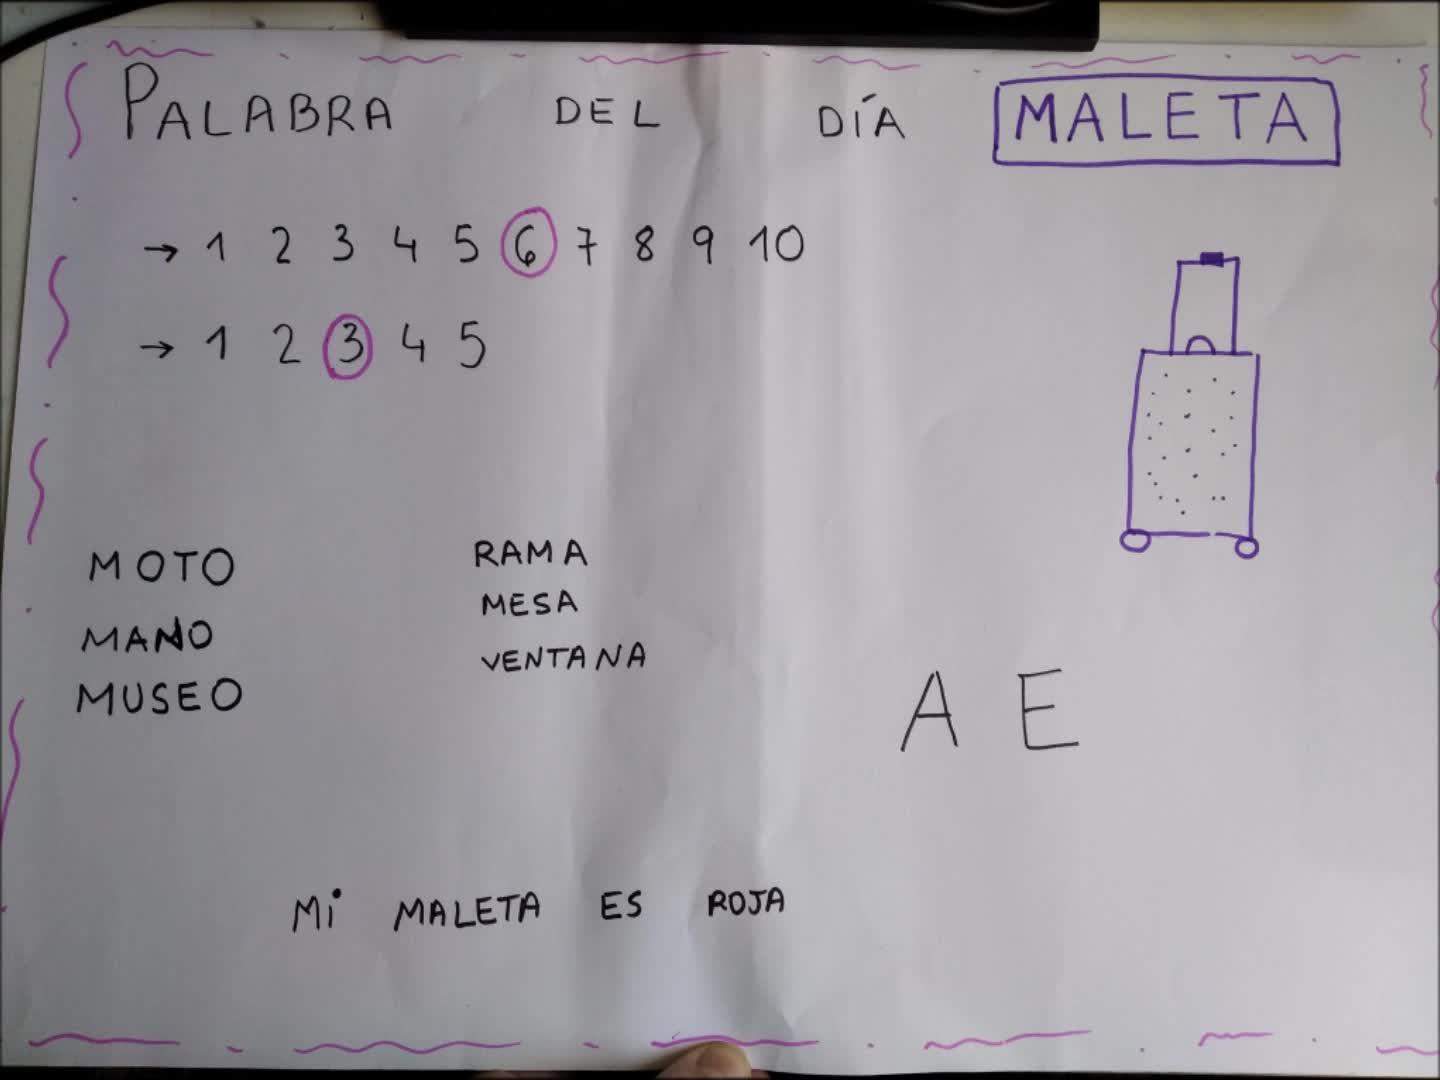 PALABRA DEL DÍA MALETA
→ 1 2 3 4 5 6 7 8 9 10
→ 1 2 3 4 5
MOTO
MANO
MUSEO
RAMA
MESA
VENTANA
A E
Mi MALETA ES ROJA